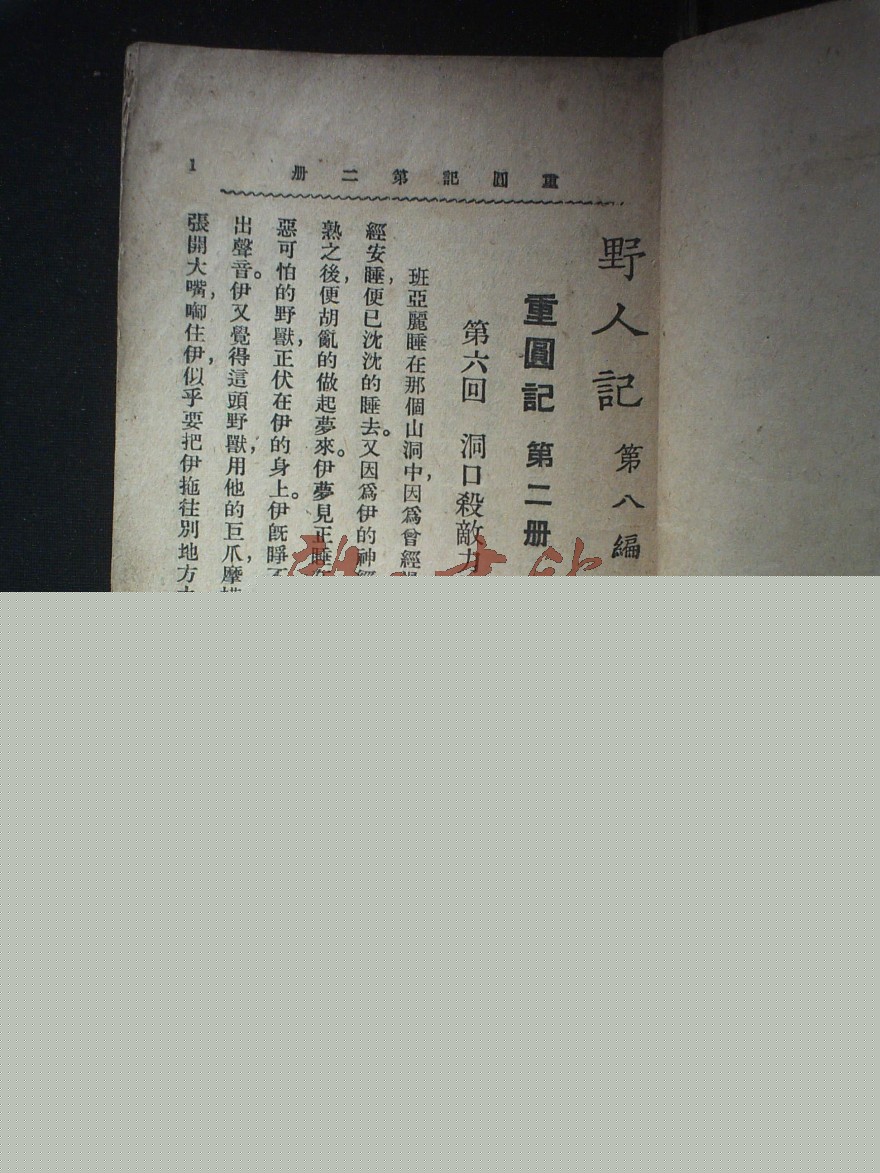 重圓記第二册
1
野人記 第八編
重圓記 第二册
第六回 洞口殺敵
班亞麗睡在那個山洞中,因爲曾經
經安睡,便已沈沈的睡去。又因爲伊的神
熟之後,便胡亂的做起夢來。伊夢見正睡
惡可怕的野獸,正伏在伊的身上。伊旣睜
出聲音。伊又覺得這頭野獸,用他的巨爪,摩
張開大嘴,啣住伊,似乎要把伊拖往別地方